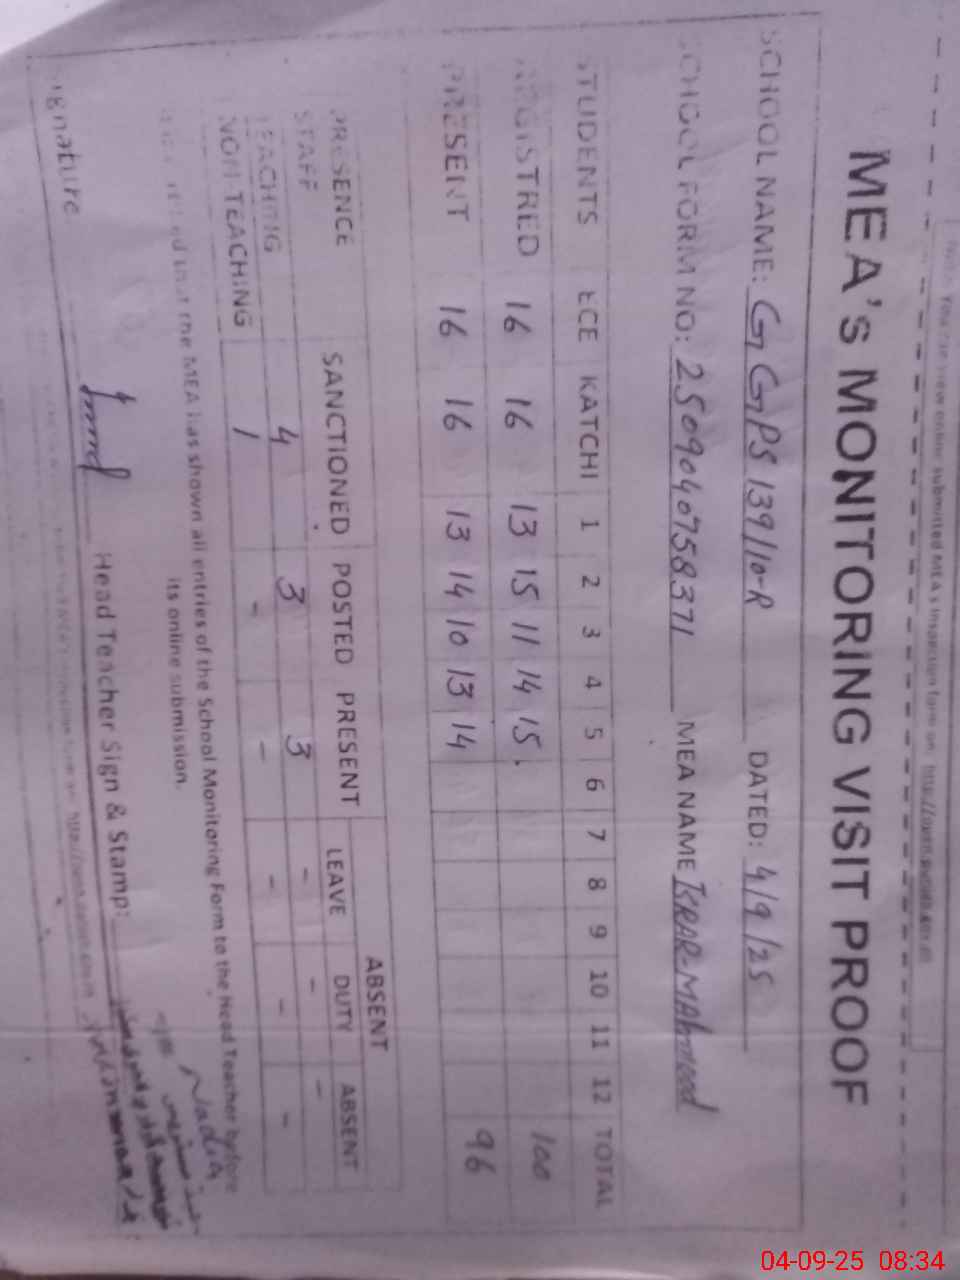 MEA'S MONITORING VISIT PROOF
SCHOOL NAME: GGPS 139/10-R DATED: 4/9/25
SCHOOL FORM NO: 25090407583 71 MEA NAME ISRAR MAHMOOD
STUDENTS ECE KATCHI 1 2 3 4 5 6 7 8 9 10 11 12 TOTAL
REGISTRED 16 16 13 15 11 14 15 100
PRESENT 16 16 13 14 10 13 14 96
ABSENT
PRESENCE SANCTIONED POSTED PRESENT LEAVE DUTY ABSENT
STAFF
TEACHING 4 3 3 - - -
NON TEACHING 1 - - - - -
that the MEA has shown all entries of the School Monitoring Form to the Head Teacher before
its online submission.
Signature Head Teacher Sign & Stamp: Nadia
04-09-25 08:34